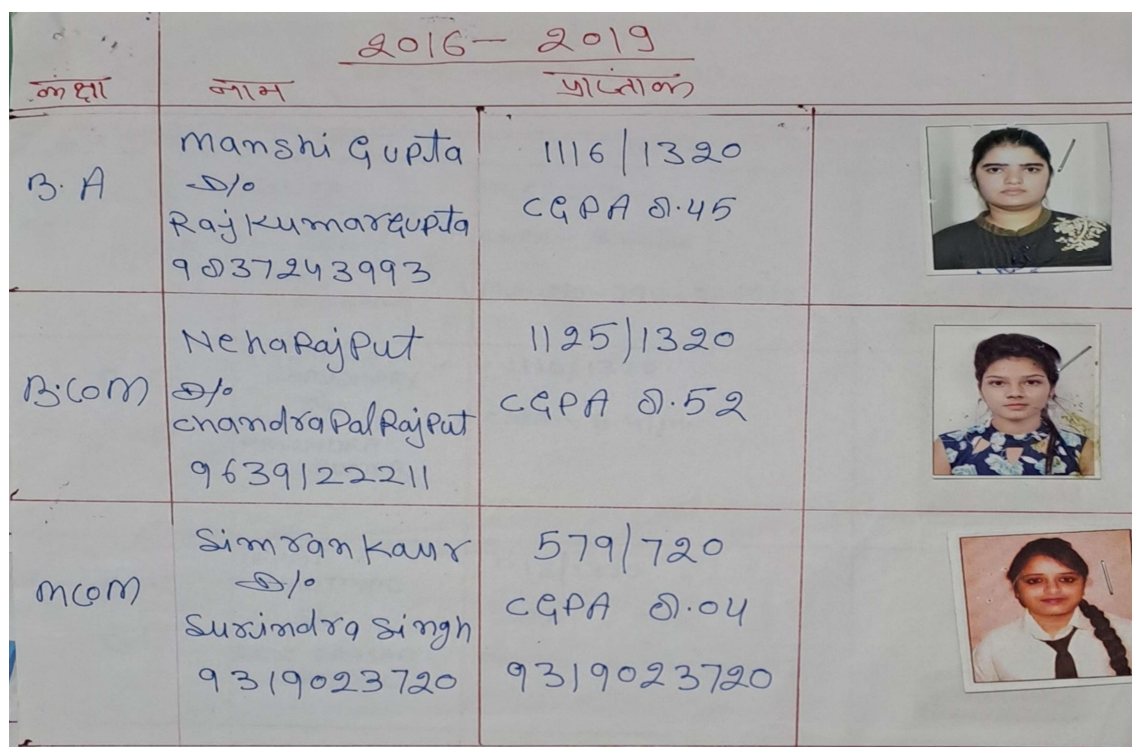 2016 - 2019
कंक्षा नाम प्राप्तांक
B.A
Manshi Gupta
D/o
Rajkumar Gupta
9837243993
1116/1320
CGPA 8.45
B.COM
Neha Rajput
D/o
Chandra Pal Rajput
9639122211
1125/1320
CGPA 8.52
MCOM
Simran Kaur
D/o
Surindra Singh
9319023720
579/720
CGPA 8.04
9319023720